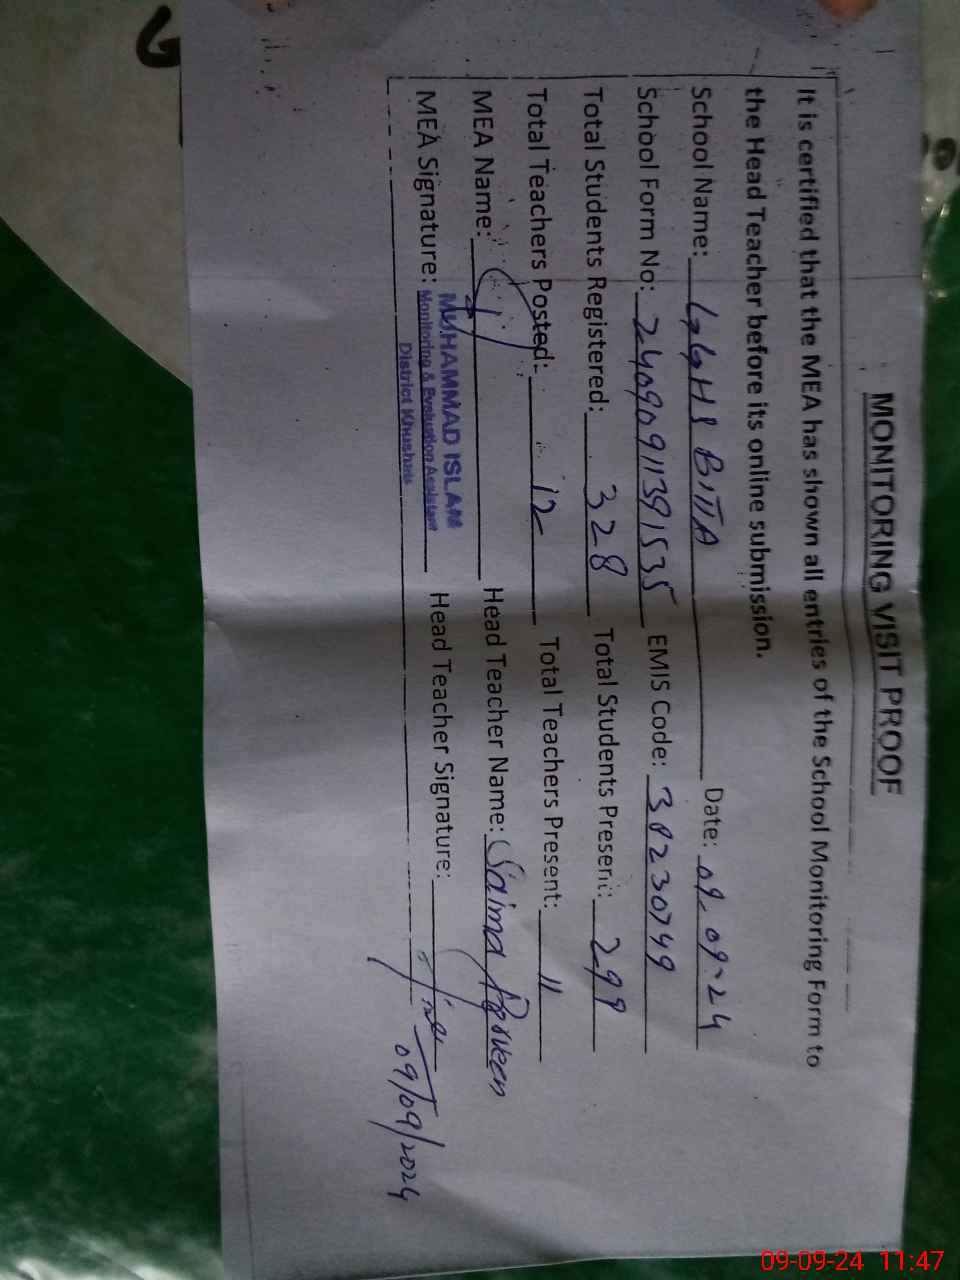 MONITORING VISIT PROOF
It is certified that the MEA has shown all entries of the School Monitoring Form to
the Head Teacher before its online submission.
School Name: GGHS BITTA Date: 09.09.24
School Form No: 24090911391535 EMIS Code: 38230749
Total Students Registered: 328 Total Students Present: 299
Total Teachers Posted: 12 Total Teachers Present: 11
MEA Name: Head Teacher Name: Saima Parveen
MEA Signature: MUHAMMAD ISLAM Head Teacher Signature:
Monitoring & Evaluation Assistant
District Khushab
09/09/2024
09-09-24 11:47